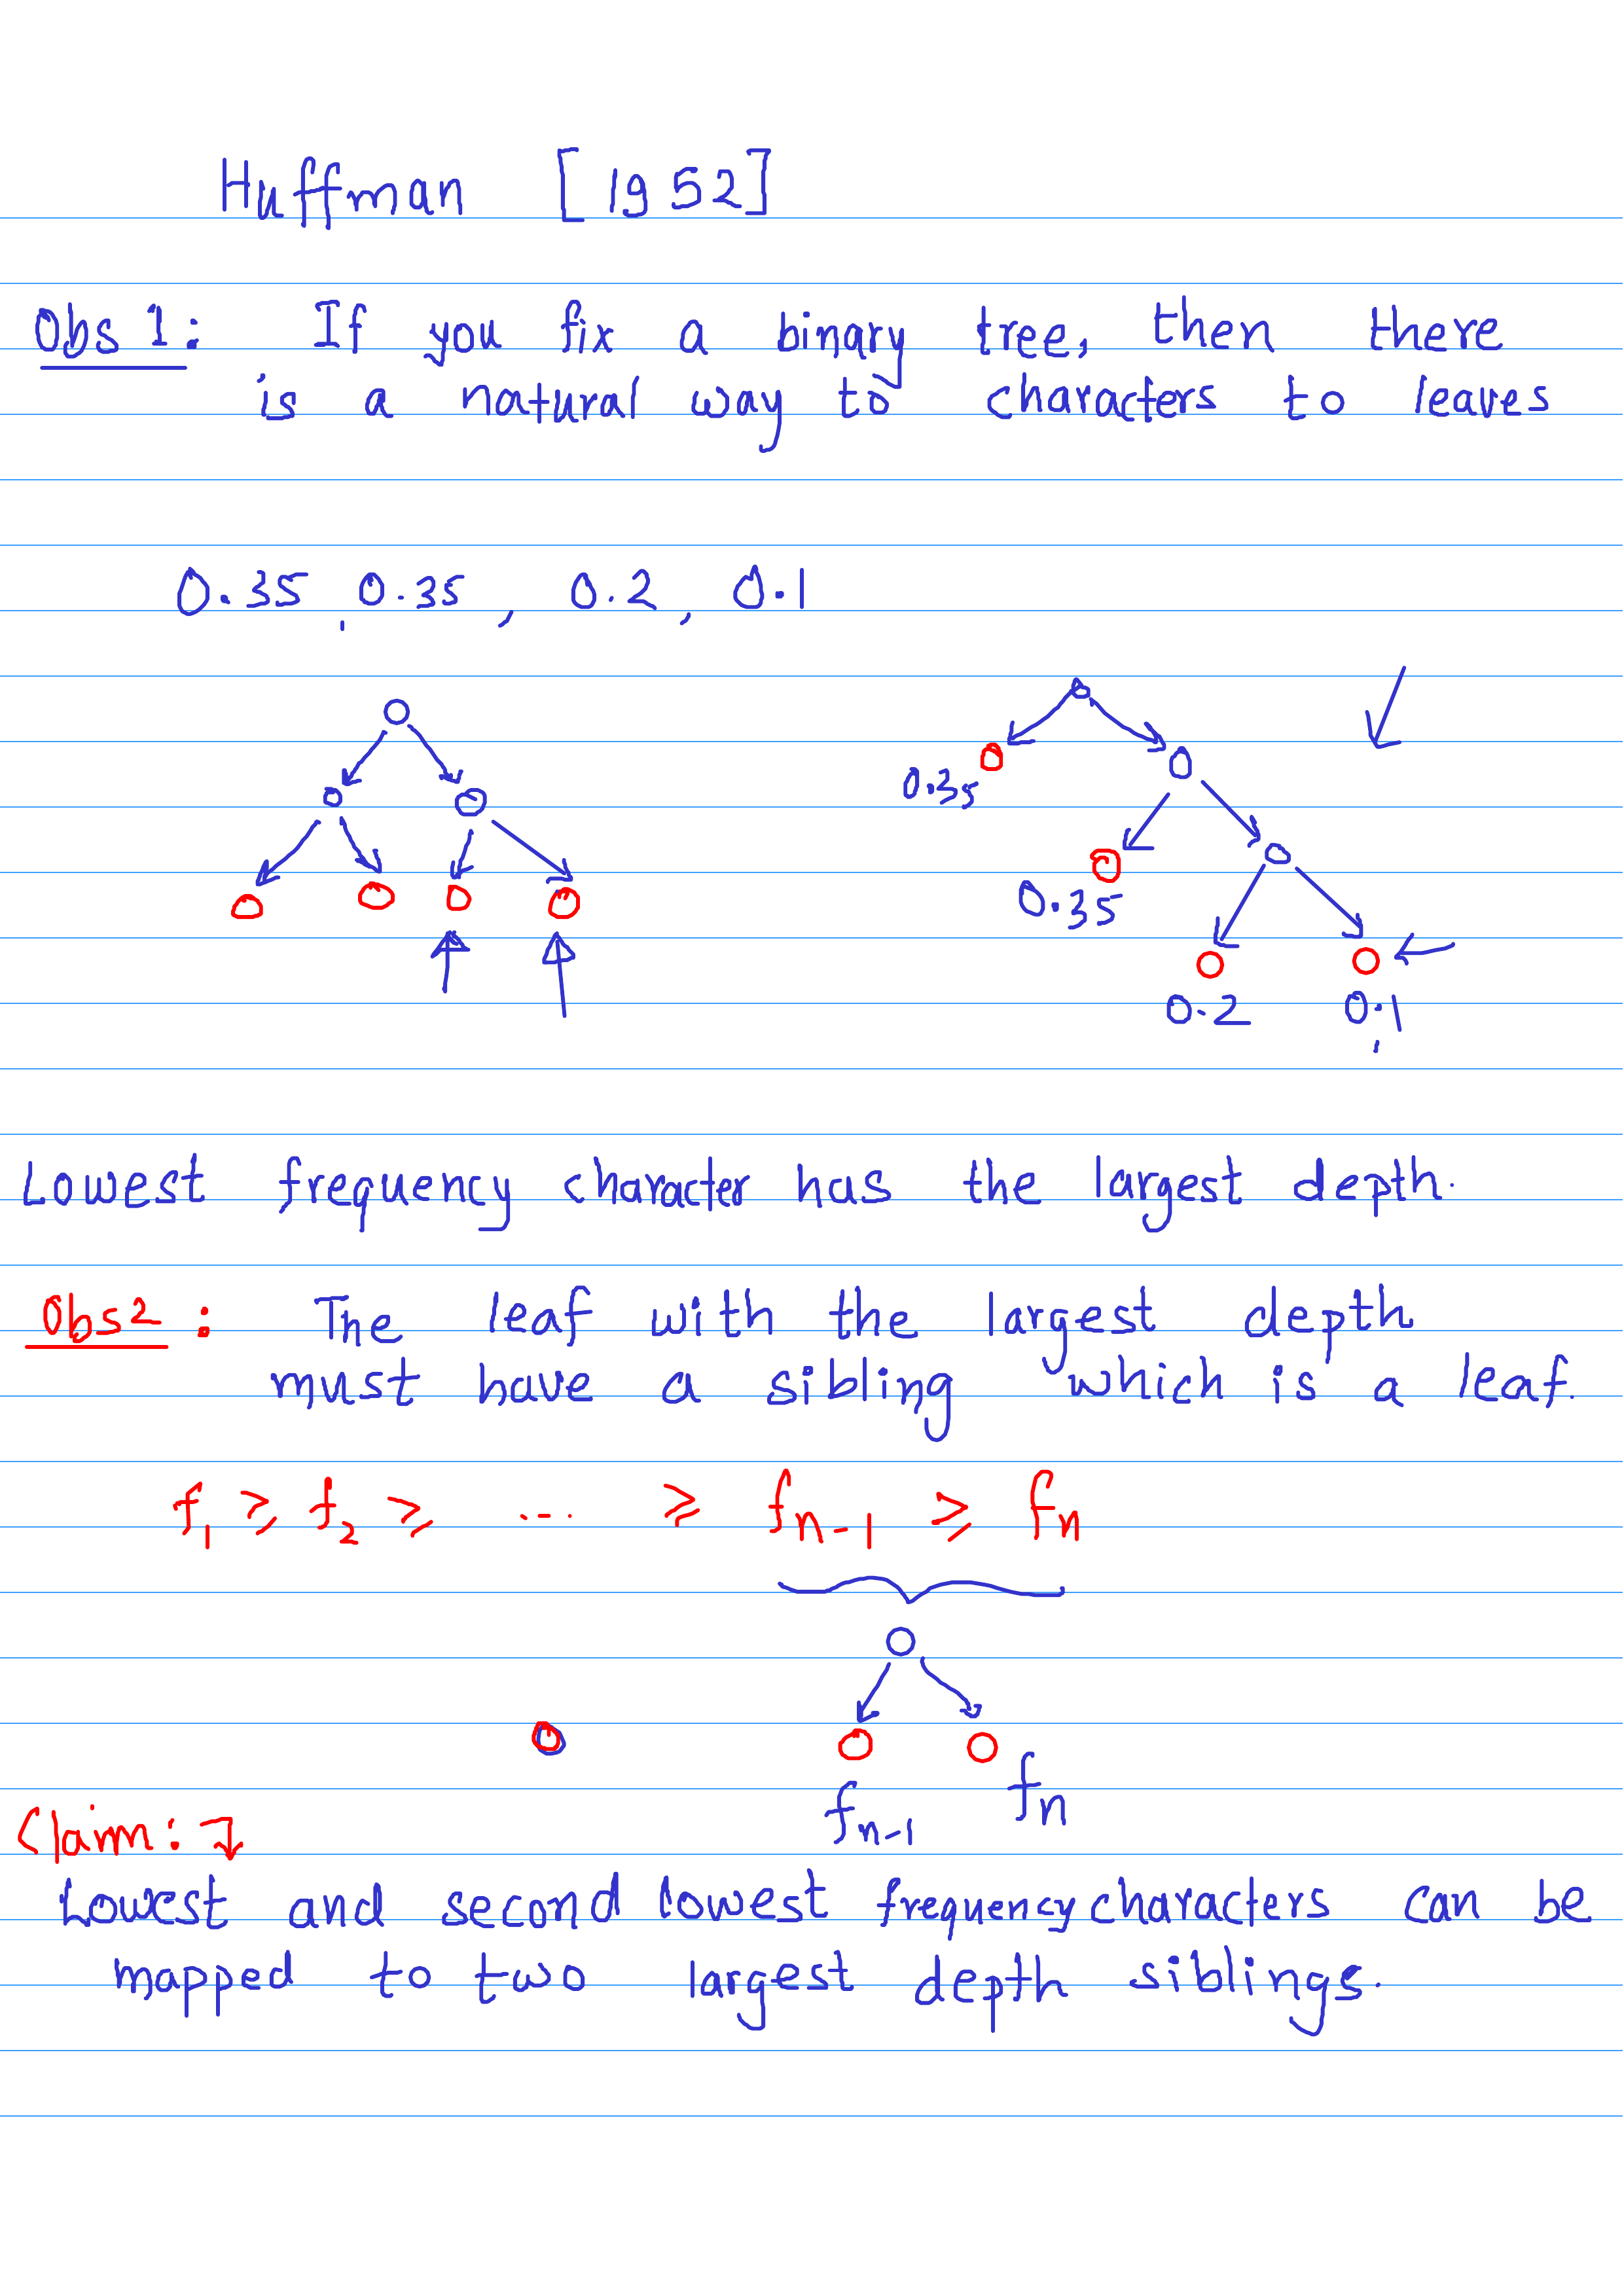 Huffman [1952]
Obs 1: If you fix a binary tree, then there
is a natural way to characters to leaves
0.35, 0.35, 0.2, 0.1
0.35
0.35
0.2 0.1
Lowest frequency character has the largest depth.
Obs2: The leaf with the largest depth
must have a sibling which is a leaf.
f₁ ≥ f₂ ≥ ... ≥ fₙ₋₁ ≥ fₙ
fₙ₋₁ fₙ
Claim:
Lowest and second lowest frequency characters can be
mapped to two largest depth siblings.